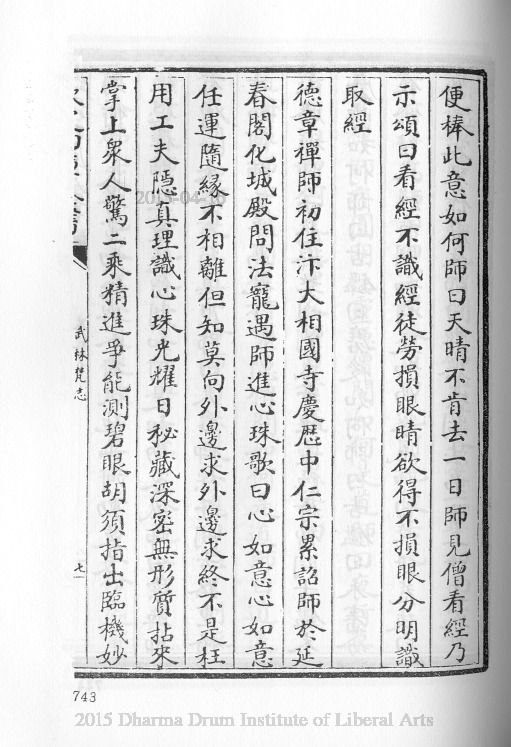 便棒此意如何師曰天晴不肯去一日師見僧看經乃
示頌曰看經不識經徒勞損眼睛欲得不損眼分明識
取經
德章禪師初住汴大相國寺慶歷中仁宗累詔師於延
春閣化城殿問法寵遇師進心珠歌曰心如意心如意
任運隨緣不相離但知莫向外邊求外邊求終不是枉
用工夫隱真理識心珠光耀日秘藏深密無形質拈來
掌上衆人驚二乘精進爭能測碧眼胡須指出臨機妙
武林梵志
七
743
2015 Dharma Drum Institute of Liberal Arts